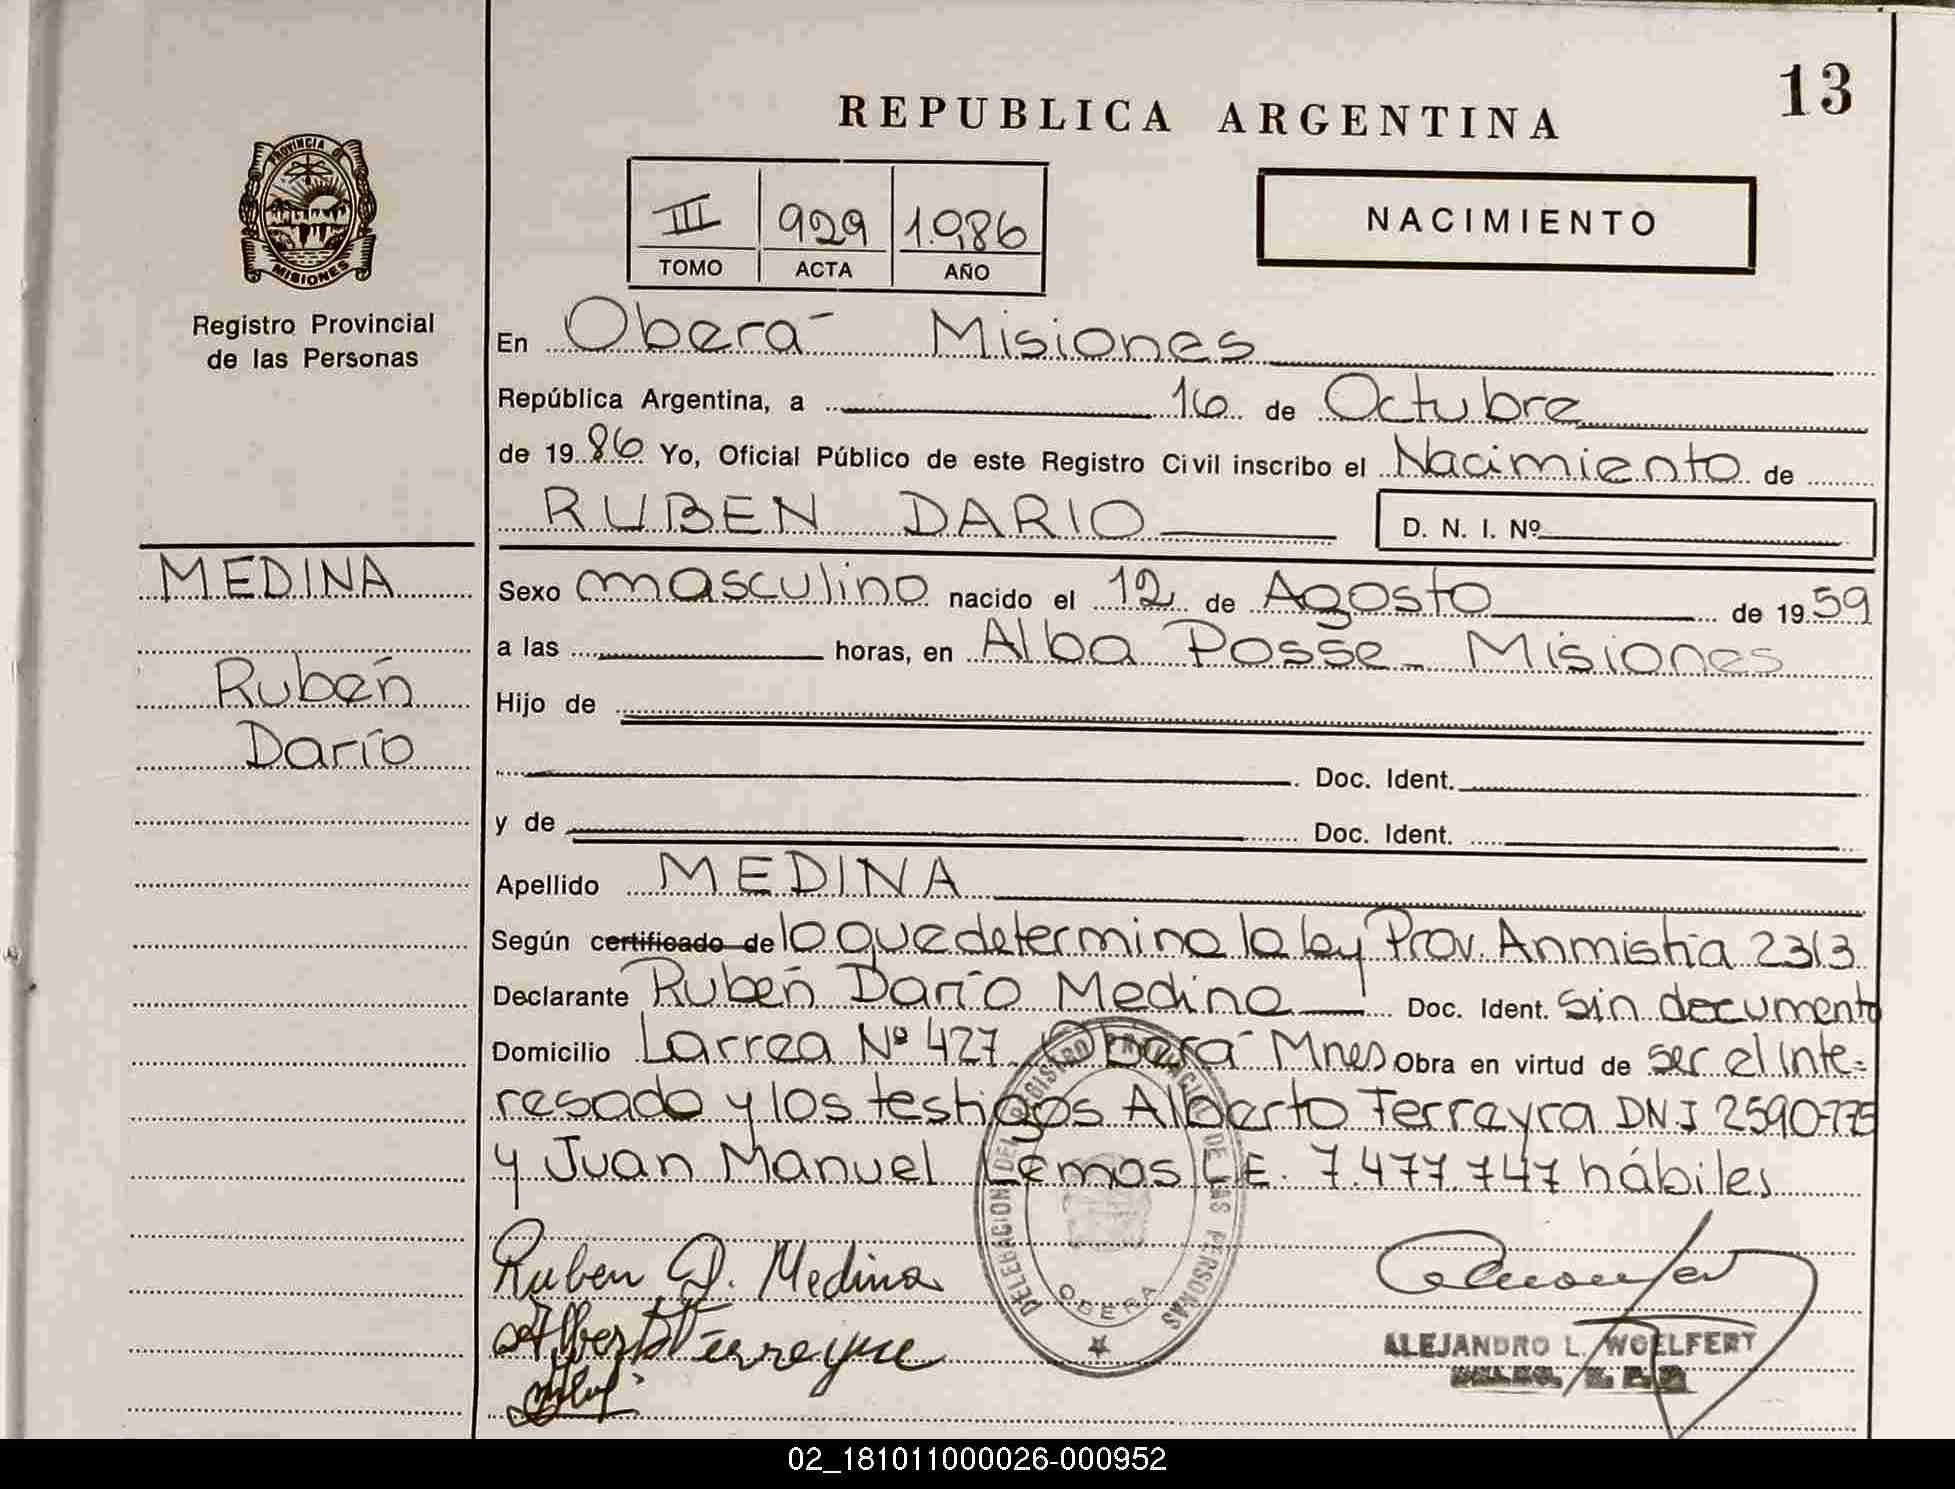 13
REPUBLICA ARGENTINA
PROVINCIA DE
MISIONES
III 929 1.986
TOMO ACTA AÑO
NACIMIENTO
Registro Provincial
de las Personas
En Oberá Misiones
República Argentina, a 16 de Octubre
de 1986 Yo, Oficial Público de este Registro Civil inscribo el Nacimiento de
RUBEN DARIO D. N. I. Nº
MEDINA
Rubén
Darío
Sexo masculino nacido el 12 de Agosto de 1959
a las horas, en Alba Posse - Misiones
Hijo de
Doc. Ident.
y de Doc. Ident.
Apellido MEDINA
Según certificado de lo que determina la ley Prov. Anmistía 2313
Declarante Rubén Darío Medina Doc. Ident. sin documento
Domicilio Larrea Nº 427 Oberá Mnes Obra en virtud de ser el inte-
resado y los testigos Alberto Ferreyra DNI 2590775
y Juan Manuel Lemas L.E. 7.477.747 hábiles
DELEGACION DEL REGISTRO PROVINCIAL DE LAS PERSONAS
OBERA
Ruben D. Medina
Alberto Ferreyra
ALEJANDRO L. WOELFERT
02_181011000026-000952